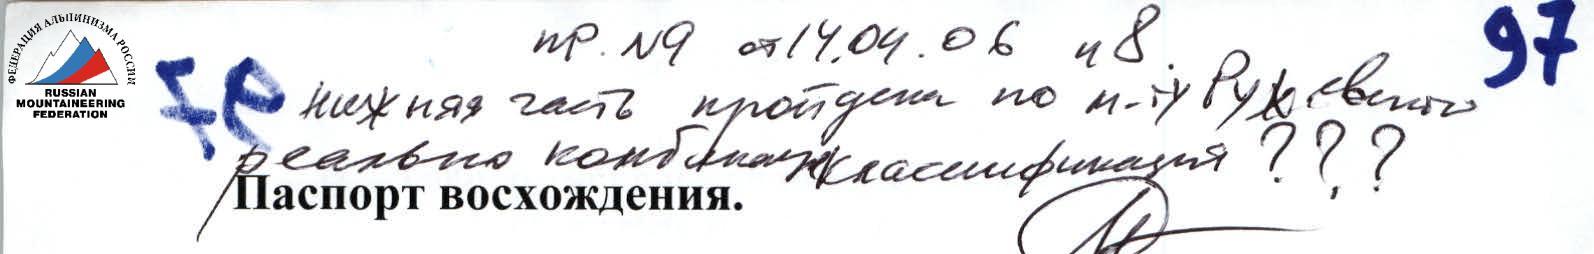 ФЕДЕРАЦИЯ АЛЬПИНИЗМА РОССИИ
RUSSIAN
MOUNTAINEERING
FEDERATION
пр. №9 от 14.04.06 п 8.
97
нижняя часть пройдена по м-ту Ружевского
реально комбинац классификация ???
Паспорт восхождения.